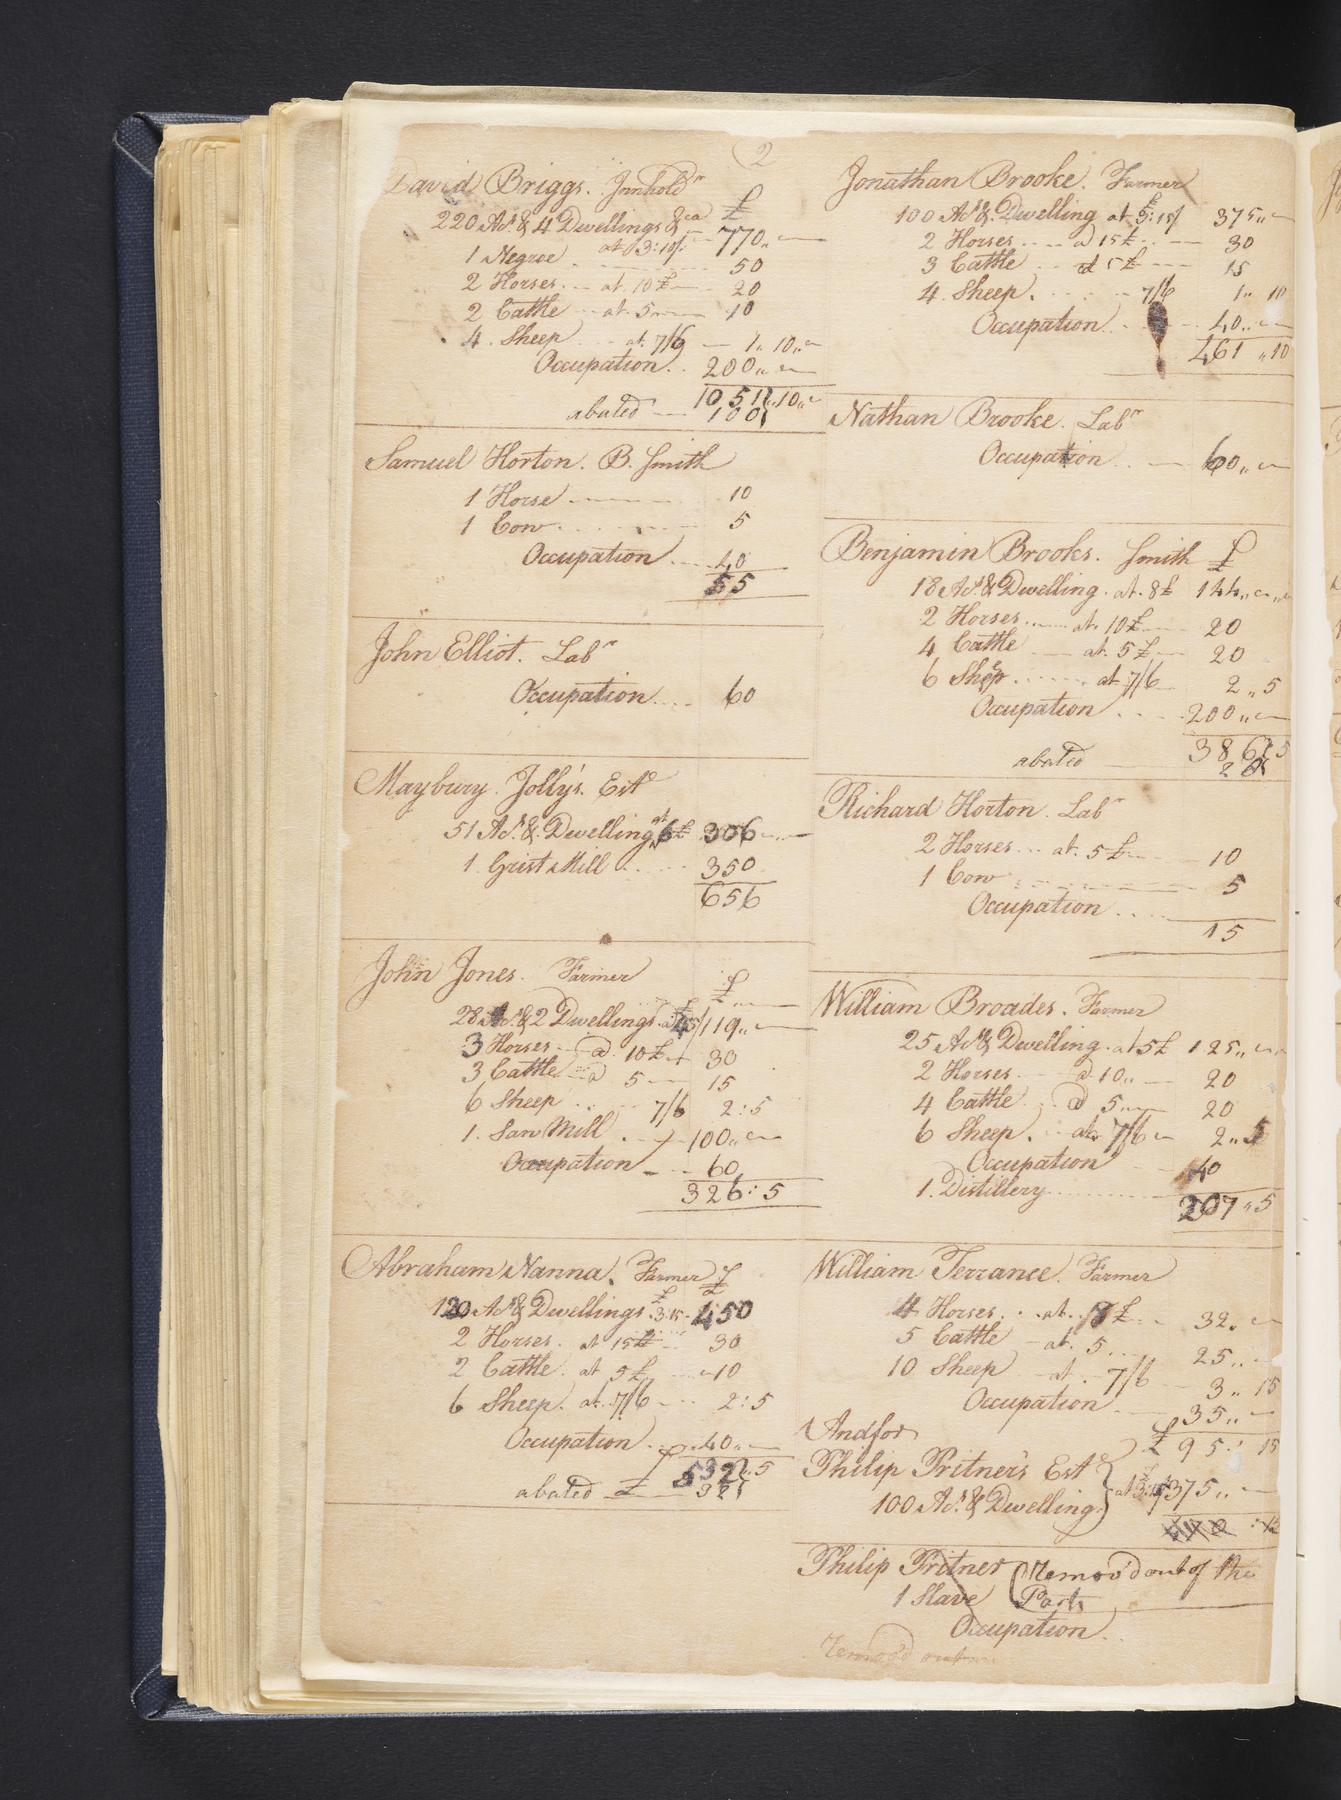 2
David Briggs. Innhold^r
£
220 A^s. & 4 Dwellings &ca
at 3:10/. 770,,
1 Negroe 50
2 Horses at 10£ 20
2 Cattle at 5 10
4 Sheep at 7/6 1,, 10,,
Occupation 200,,
1051,,10,,
abated 100
Samuel Horton. B. Smith
1 Horse 10
1 Cow 5
Occupation 40
55
John Elliot. Lab^r
Occupation 60
Maybury Jolly's. Est^e
51 A^s. & Dwelling at 6£ 306
1 Grist Mill 350
656
John Jones. Farmer
£
28 A^s. & 2 Dwellings 119,,
3 Horses @ 10£ 30
3 Cattle @ 5 15
6 Sheep 7/6 2:5
1. Saw Mill 100,,
Occupation 60
326:5
Abraham Nanna. Farmer £
120 A^s & Dwellings £3.15. 450
2 Horses. at 15£ 30
2 Cattle. at 5£ 10
6 Sheep. at 7/6 2:5
Occupation 40,,
532,,5
abated £ 32
Jonathan Brooke. Farmer
100 A^s. & Dwelling at £3:15/ 375,,
2 Horses @ 15£ 30
3 Cattle at 5£ 15
4. Sheep. 7/6 1,, 10
Occupation 40,,
461,,10
Nathan Brooke. Lab^r
Occupation 60,,
Benjamin Brooks. Smith £
18 A^s. & Dwelling. at. 8£ 144,,
2 Horses at. 10£ 20
4 Cattle at. 5£ 20
6 Sheep at 7/6 2,, 5
Occupation 200,,
386,,5
abated 20
Richard Horton. Lab^r
2 Horses at. 5£ 10
1 Cow 5
Occupation
15
William Broades. Farmer
25 A^s & Dwelling. at 5£ 125,,
2 Horses @ 10,, 20
4 Cattle @ 5,, 20
6 Sheep. at 7/6 2,, 5
Occupation 40
1. Distillery
207,,5
William Terrance. Farmer
4 Horses. at. 8£ 32,,
5 Cattle at. 5 25,,
10 Sheep at. 7/6 3,, 15
Occupation 35,,
And for £ 95: 15
Philip Pritner's Est^e
100 A^s. & Dwelling. at £3:15/ 375,,
Philip Pritner Remov'd out of the
1 Slave Parts
Occupation.
Remov'd out